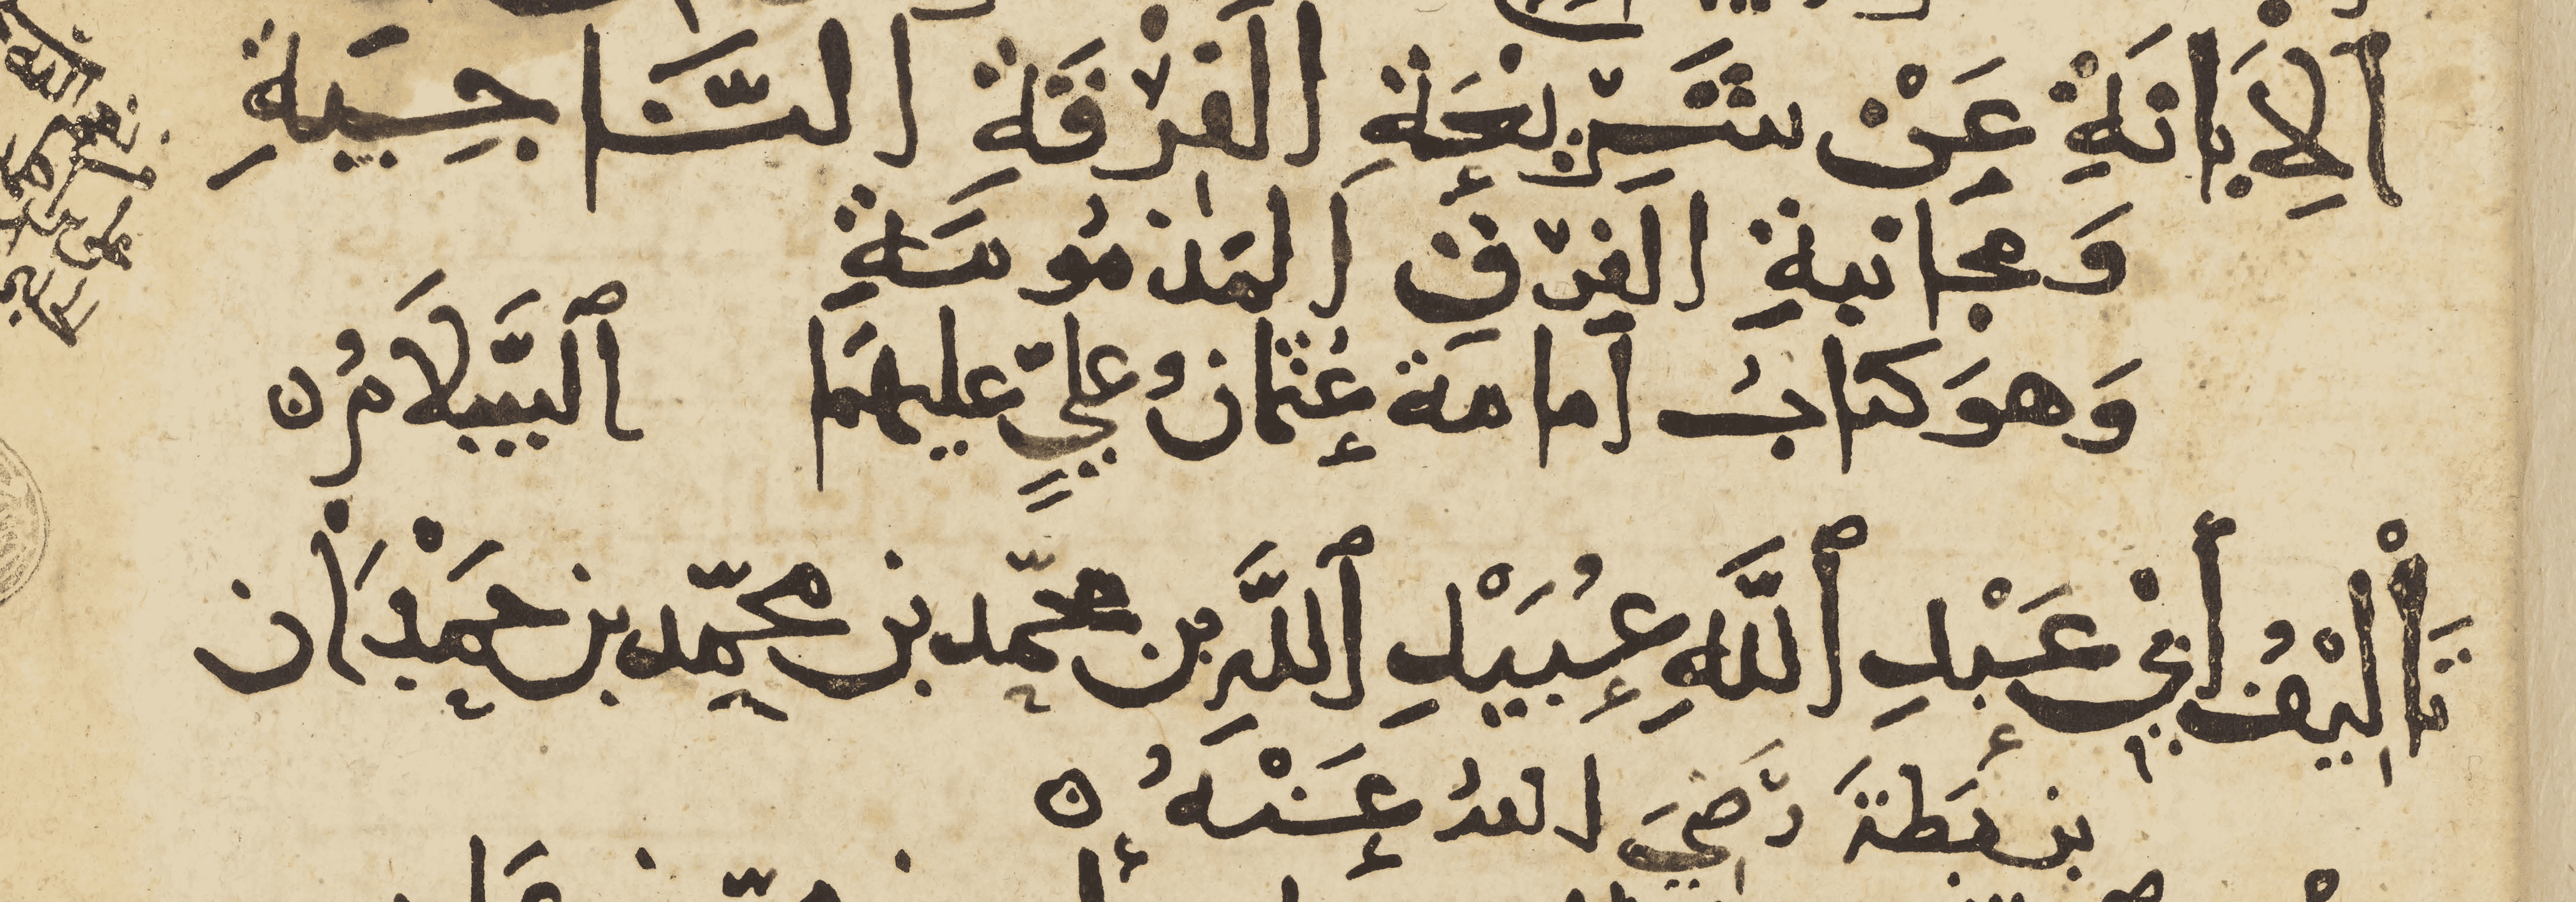 ٱلْإِبَانَةِ عَنْ شَرِيعَةِ الْفِرْقَةِ النَّاجِيَةِ
وَمُجَانبةِ الفِرَقِ المَذمُومَةِ
وَهوَ كتابُ اما مة عُثمانُ عليٍّ عليهمَا ٱلسَّلَامُ ه
تَأْلِيْفُ أَبِي عَبْدِ ٱللَّهِ عُبَيْدِ ٱللَّهِ بن محمّد بن محمّد بن حَمْدَان
بن بَطةَ رَضِيَ اللهُ عَنْهُ ه